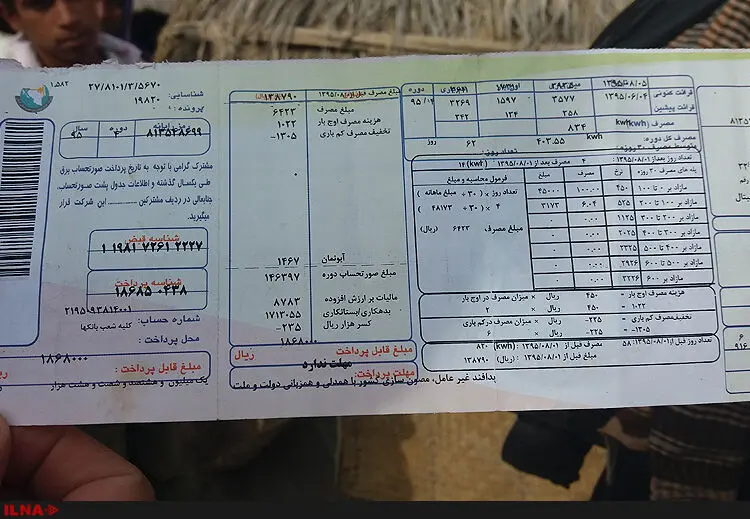 ۱,۵۸۲
شناسایی: ۲۷/۸۱۰۱/۳/۵۶۷۰
پرونده: ۱۹۸۲۰
رمزرایانه
۸۱۳۵۴۸۶۹۹
دوره ۴
سال ۹۵
مشترک گرامی با توجه به تاریخ پرداخت صورتحساب برق
طی یکسال گذشته و اطلاعات جدول پشت صورتحساب،
جنابعالی در ردیف مشترکین .............. این شرکت قرار
میگیرید.
شناسه قبض
۱ ۱۹۸۱ ۷۲۶۱ ۲۲۲۷
شناسه پرداخت
شماره حساب: کلیه شعب بانکها
محل پرداخت:
۱۸۶۸۰۰۰
مبلغ قابل پرداخت:
ریال
یک میلیون و هشتصد و شصت و هشت هزار
مبلغ مصرف قبل از ۱۳۹۵/۰۸/۰۱ ۱۳۸۷۹۰
مبلغ مصرف ۶۴۲۳
هزینه مصرف اوج بار ۱۰۲۲
تخفیف مصرف کم باری -۱۳۰۵
آبونمان ۱۴۶۷
مبلغ صورتحساب دوره ۱۴۶۳۹۷
مالیات بر ارزش افزوده ۸۷۸۳
بدهکاری/بستانکاری ۱۷۱۳۰۵۵
کسر هزار ریال -۲۳۵
۱۸۶۸۰۰۰
مبلغ قابل پرداخت ریال
مهلت ندارد
مهلت پرداخت:
پدافند غیر عامل، مصون سازی کشور با همدلی و همزبانی دولت و ملت
دوره ۹۵/۰۴
قرائت کنونی ۱۳۹۵/۰۸/۰۵
قرائت پیشین ۱۳۹۵/۰۶/۰۴ ۳۵۷۷ ۱۵۹۷ ۳۲۶۹
۳۵۸ ۱۳۴ ۳۴۲
مصرف (kwh) ۸۳۴
مصرف کل دوره: kwh ۶۲ روز
متوسط مصرف ۳۰ روزه: ۴۰۳.۵۵ kwh
تعداد روز بعد از ۱۳۹۵/۰۸/۰۱: ۴ مصرف بعد از ۱۳۹۵/۰۸/۰۱ (kwh) ۱۴
پله های مصرف ۳۰ روزه نرخ مصرف مبلغ فرمول محاسبه و مبلغ
مازاد بر ۰ تا ۱۰۰ ۴۵۰ ۱۰۰.۰۰ ۴۵۰۰۰ تعداد روز × (۳۰ ÷ مبلغ ماهانه)
مازاد بر ۱۰۰ تا ۲۰۰ ۵۲۵ ۶.۰۴ ۳۱۷۳ ۴ × (۳۰ ÷ ۴۸۱۷۳)
مازاد بر ۲۰۰ تا ۳۰۰ ۱۱۲۵ ۰.۰۰ ۰ مبلغ مصرف ۶۴۲۳ (ریال)
مازاد بر ۳۰۰ تا ۴۰۰ ۲۰۲۵ ۰.۰۰ ۰
مازاد بر ۴۰۰ تا ۵۰۰ ۲۳۲۵ ۰.۰۰ ۰
مازاد بر ۵۰۰ تا ۶۰۰ ۲۹۲۶ ۰.۰۰ ۰
مازاد بر ۶۰۰ ۳۲۲۶ ۰.۰۰ ۰
هزینه مصرف اوج بار = ۴۵۰ ریال × میزان مصرف در اوج بار
۱۰۲۲ = ۴۵۰ ریال × ۲
تخفیف مصرف کم باری = -۲۲۵ ریال × میزان مصرف در کم باری
-۱۳۰۵ = -۲۲۵ ریال × ۶
تعداد روز قبل از ۱۳۹۵/۰۸/۰۱: ۵۸ مصرف قبل از ۱۳۹۵/۰۸/۰۱ (kwh): ۸۲۰
مبلغ قبل از ۱۳۹۵/۰۸/۰۱ (ریال): ۱۳۸۷۹۰
ILNA